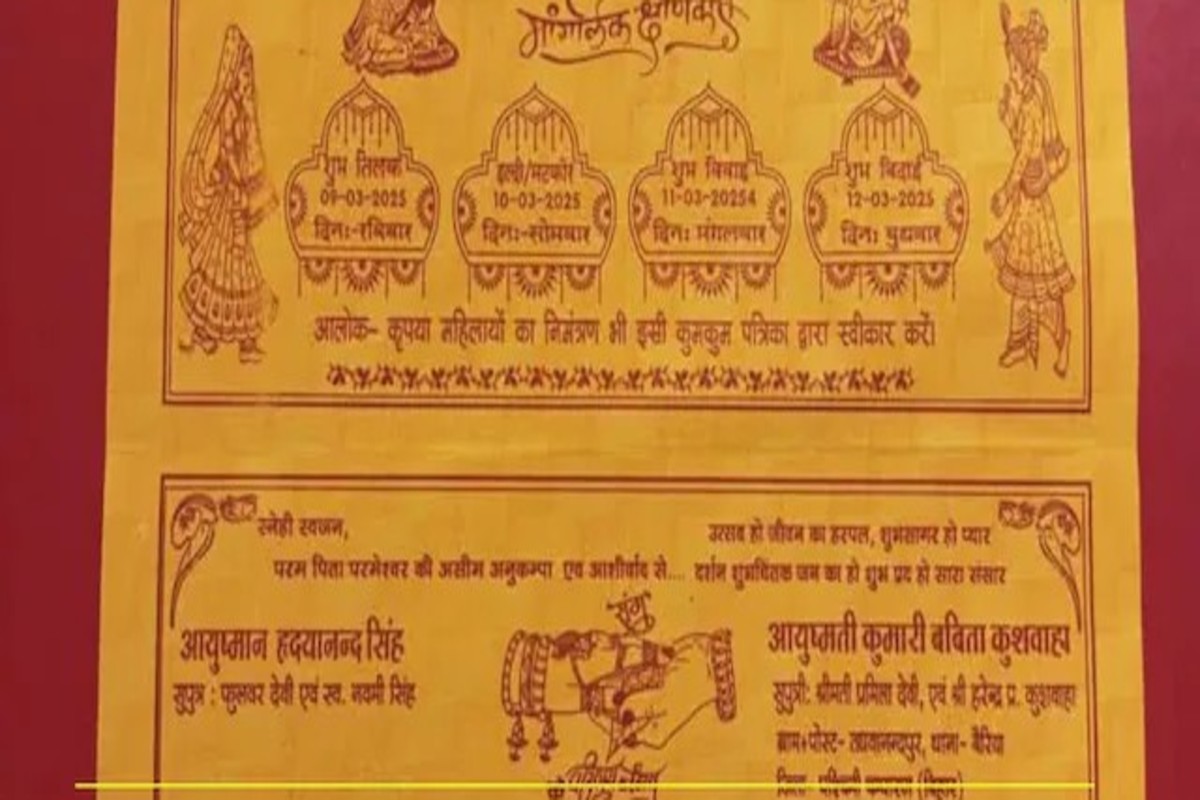 मांगलिक क्षणिकाएं
शुभ तिलक
09-03-2025
दिन:-रविवार
हल्दी/मटकोर
10-03-2025
दिन:-सोमवार
शुभ विवाह
11-03-20254
दिन: मंगलवार
शुभ विदाई
12-03-2025
दिन: बुधवार
आलोक- कृपया महिलायों का निमंत्रण भी इसी कुमकुम पत्रिका द्वारा स्वीकार करें।
स्नेही स्वजन,
उत्सव हो जीवन का हरपल, शुभसागर हो प्यार
परम पिता परमेश्वर की असीम अनुकम्पा एवं आशीर्वाद से....
दर्शन शुभचिंतक जन का हो शुभ प्रद हो सारा संसार
आयुष्मान हृदयानन्द सिंह
सुपुत्र : फुलवर देवी एवं स्व. नवमी सिंह
संग
आयुष्मती कुमारी बबिता कुशवाहा
सुपुत्री: श्रीमती प्रमिला देवी, एवं श्री हरेन्द्र प्र. कुशवाहा
ग्राम+पोस्ट- थाना- बैरिया
जिला- पश्चिमी चम्पारण (बिहार)